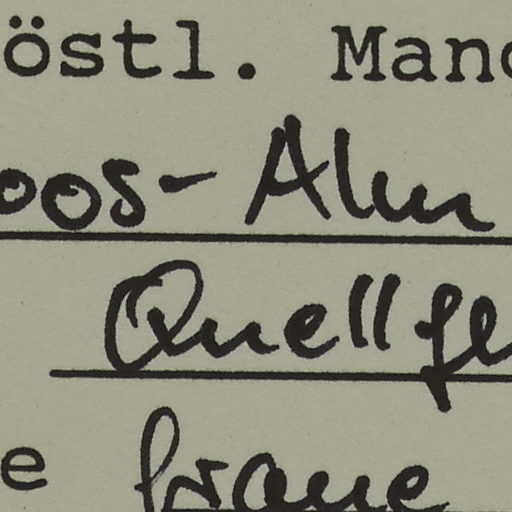 östl. Mano
oos-Alm
Quellfl
e braune